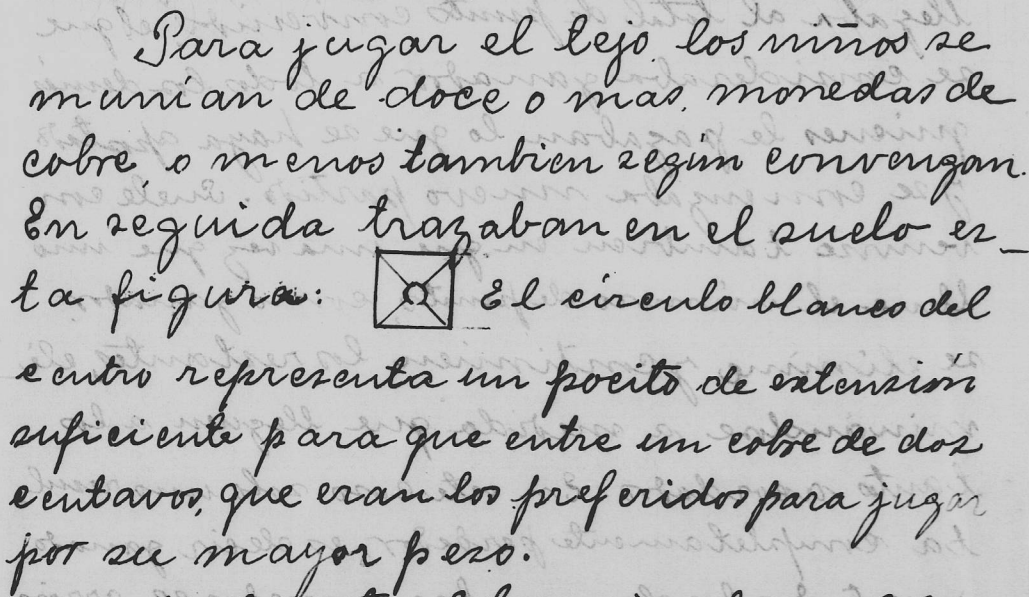 Para jugar el tejo los niños se
munían de doce o mas, monedas de
cobre, o menos tambien según convengan.
En seguida trazaban en el suelo es_
ta figura: El círculo blanco del
centro representa un pocito de extensión
suficiente para que entre un cobre de dos
centavos, que eran los preferidos para jugar
por su mayor peso.